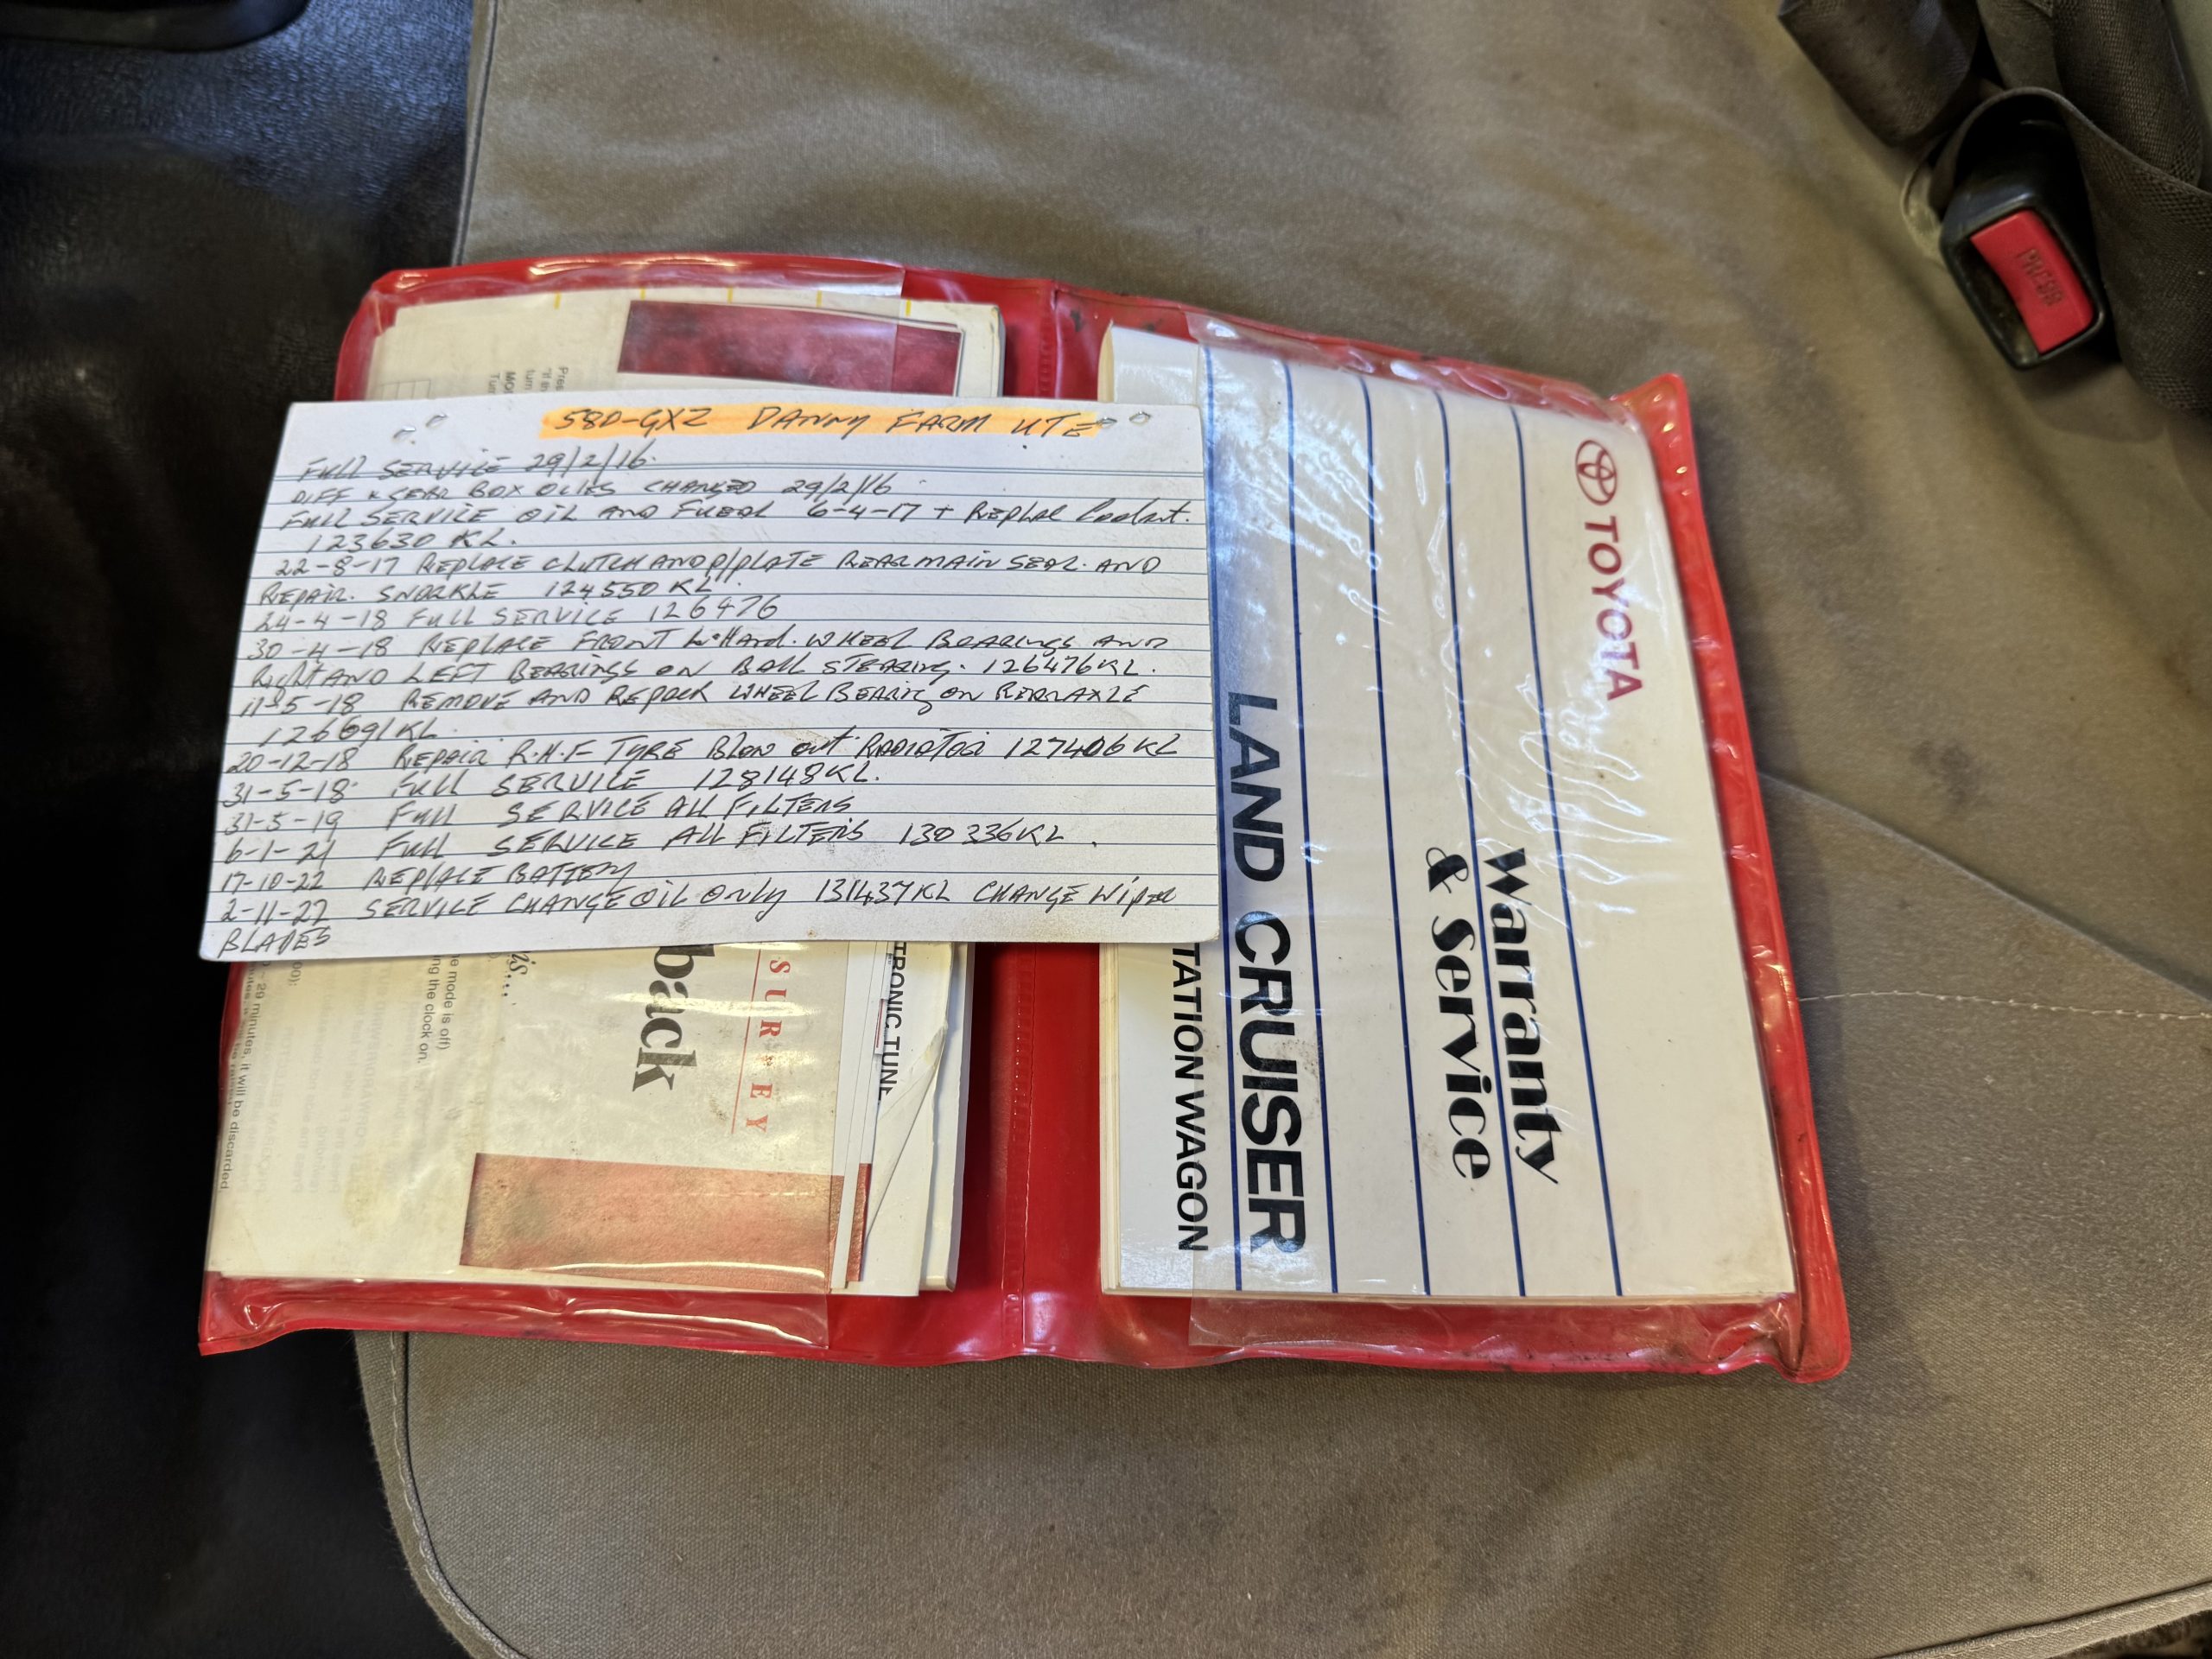 580-GXZ DANNY FARM UTE
FULL SERVICE 29/2/16.
DIFF & GEAR BOX OLIES CHANGED 29/2/16
FULL SERVICE OIL AND FUEAL 6-4-17 + REPLAE Coolant.
123630 KL.
22-8-17 REPLACE CLUTCH AND P/PLATE REAR MAIN SEAL. AND
REPAIR. SNORKLE 124550 KL.
24-4-18 FULL SERVICE 126476
30-4-18 REPLACE FRONT L.Hand. WHEEL BEARINGS AND
RIGHT AND LEFT BEARINGS ON BALL STEARING. 126476KL.
11-5-18 REMOVE AND REPACK WHEEL BEARING ON REAR AXLE
126691KL
20-12-18 REPAIR R.H.F TYRE BLOW OUT RADIATOR 127406 KL
31-5-18 FULL SERVICE 128148KL.
31-5-19 FULL SERVICE ALL FILTERS
6-1-21 FULL SERVICE ALL FILTERS 130336KL.
17-10-22 REPLACE BATTERY
2-11-22 SERVICE CHANGE OIL ONLY 131437KL CHANGE WIPER
BLADES
TOYOTA
Warranty
& Service
LAND CRUISER
TATION WAGON
PRESS
TRONIC TUNE
SUR EY
back
is...
e mode is off)
ng the clock on.
29 minutes, it will be discarded